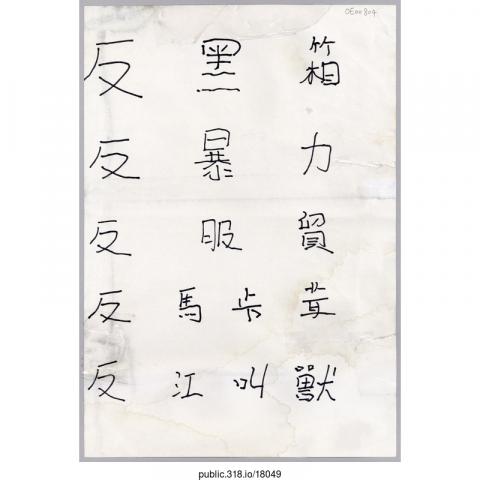 OE00804
反 黑 箱
反 暴 力
反 服 貿
反 馬 卡 茸
反 江 叫 獸
public.318.io/18049